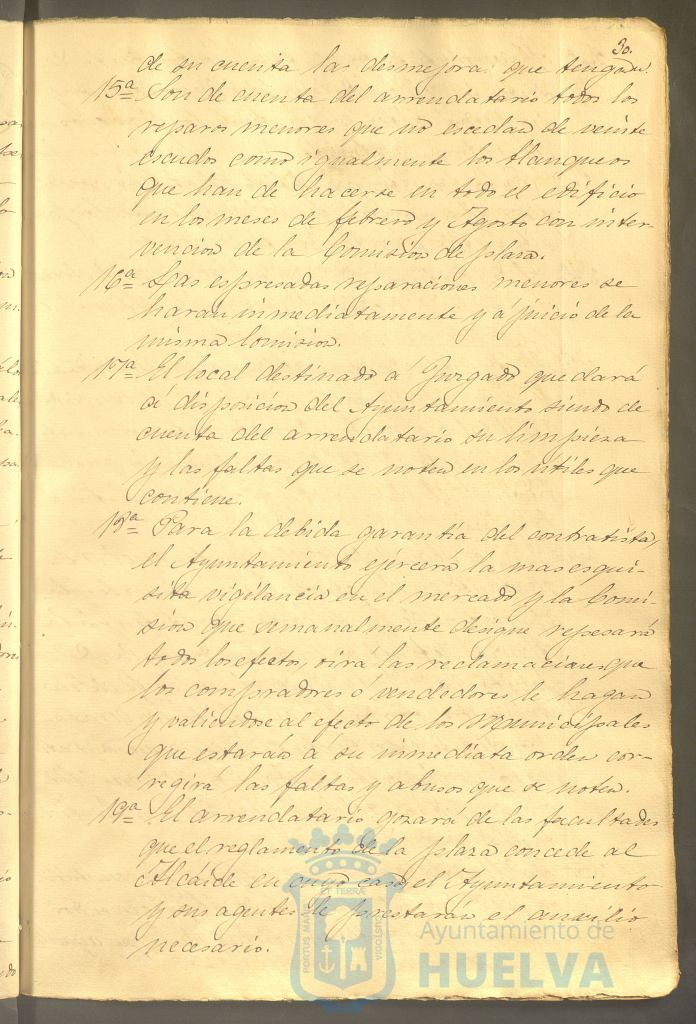 30.
de su cuenta las desmejoras que tengan.
15ª Son de cuenta del arrendatario todos los
reparos menores que no escedan de veinte
escudos como igualmente los blanqueos
que han de hacerse en todo el edificio
en los meses de febrero y Agosto con inter-
vencion de la Comision de plaza.
16ª Las espresadas reparaciones menores se
haran inmediatamente y a juicio de la
misma Comision.
17ª El local destinado á Juzgado quedará
á disposicion del Ayuntamiento siendo de
cuenta del arrendatario su limpieza
y las faltas que se noten en los útiles que
contiene.
18ª Para la debida garantia del contratista,
el Ayuntamiento ejercerá la mas esqui-
sita vigilancia en el mercado y la Comi-
sion que semanalmente designe repesará
todos los efectos, oirá las reclamaciones que
los compradores ó vendedores le hagan
y valiendose al efecto de los Municipales
que estarán á su inmediata orden cor-
regirá las faltas y abusos que se noten.
19ª El arrendatario gozará de las facultades
que el reglamento de la plaza concede al
Alcaide en cuyo caso el Ayuntamiento
y sus agentes le prestarán el auxilio
necesario.
PORTUS MARIS ET TERRAE CUSTODIA
Ayuntamiento de
HUELVA